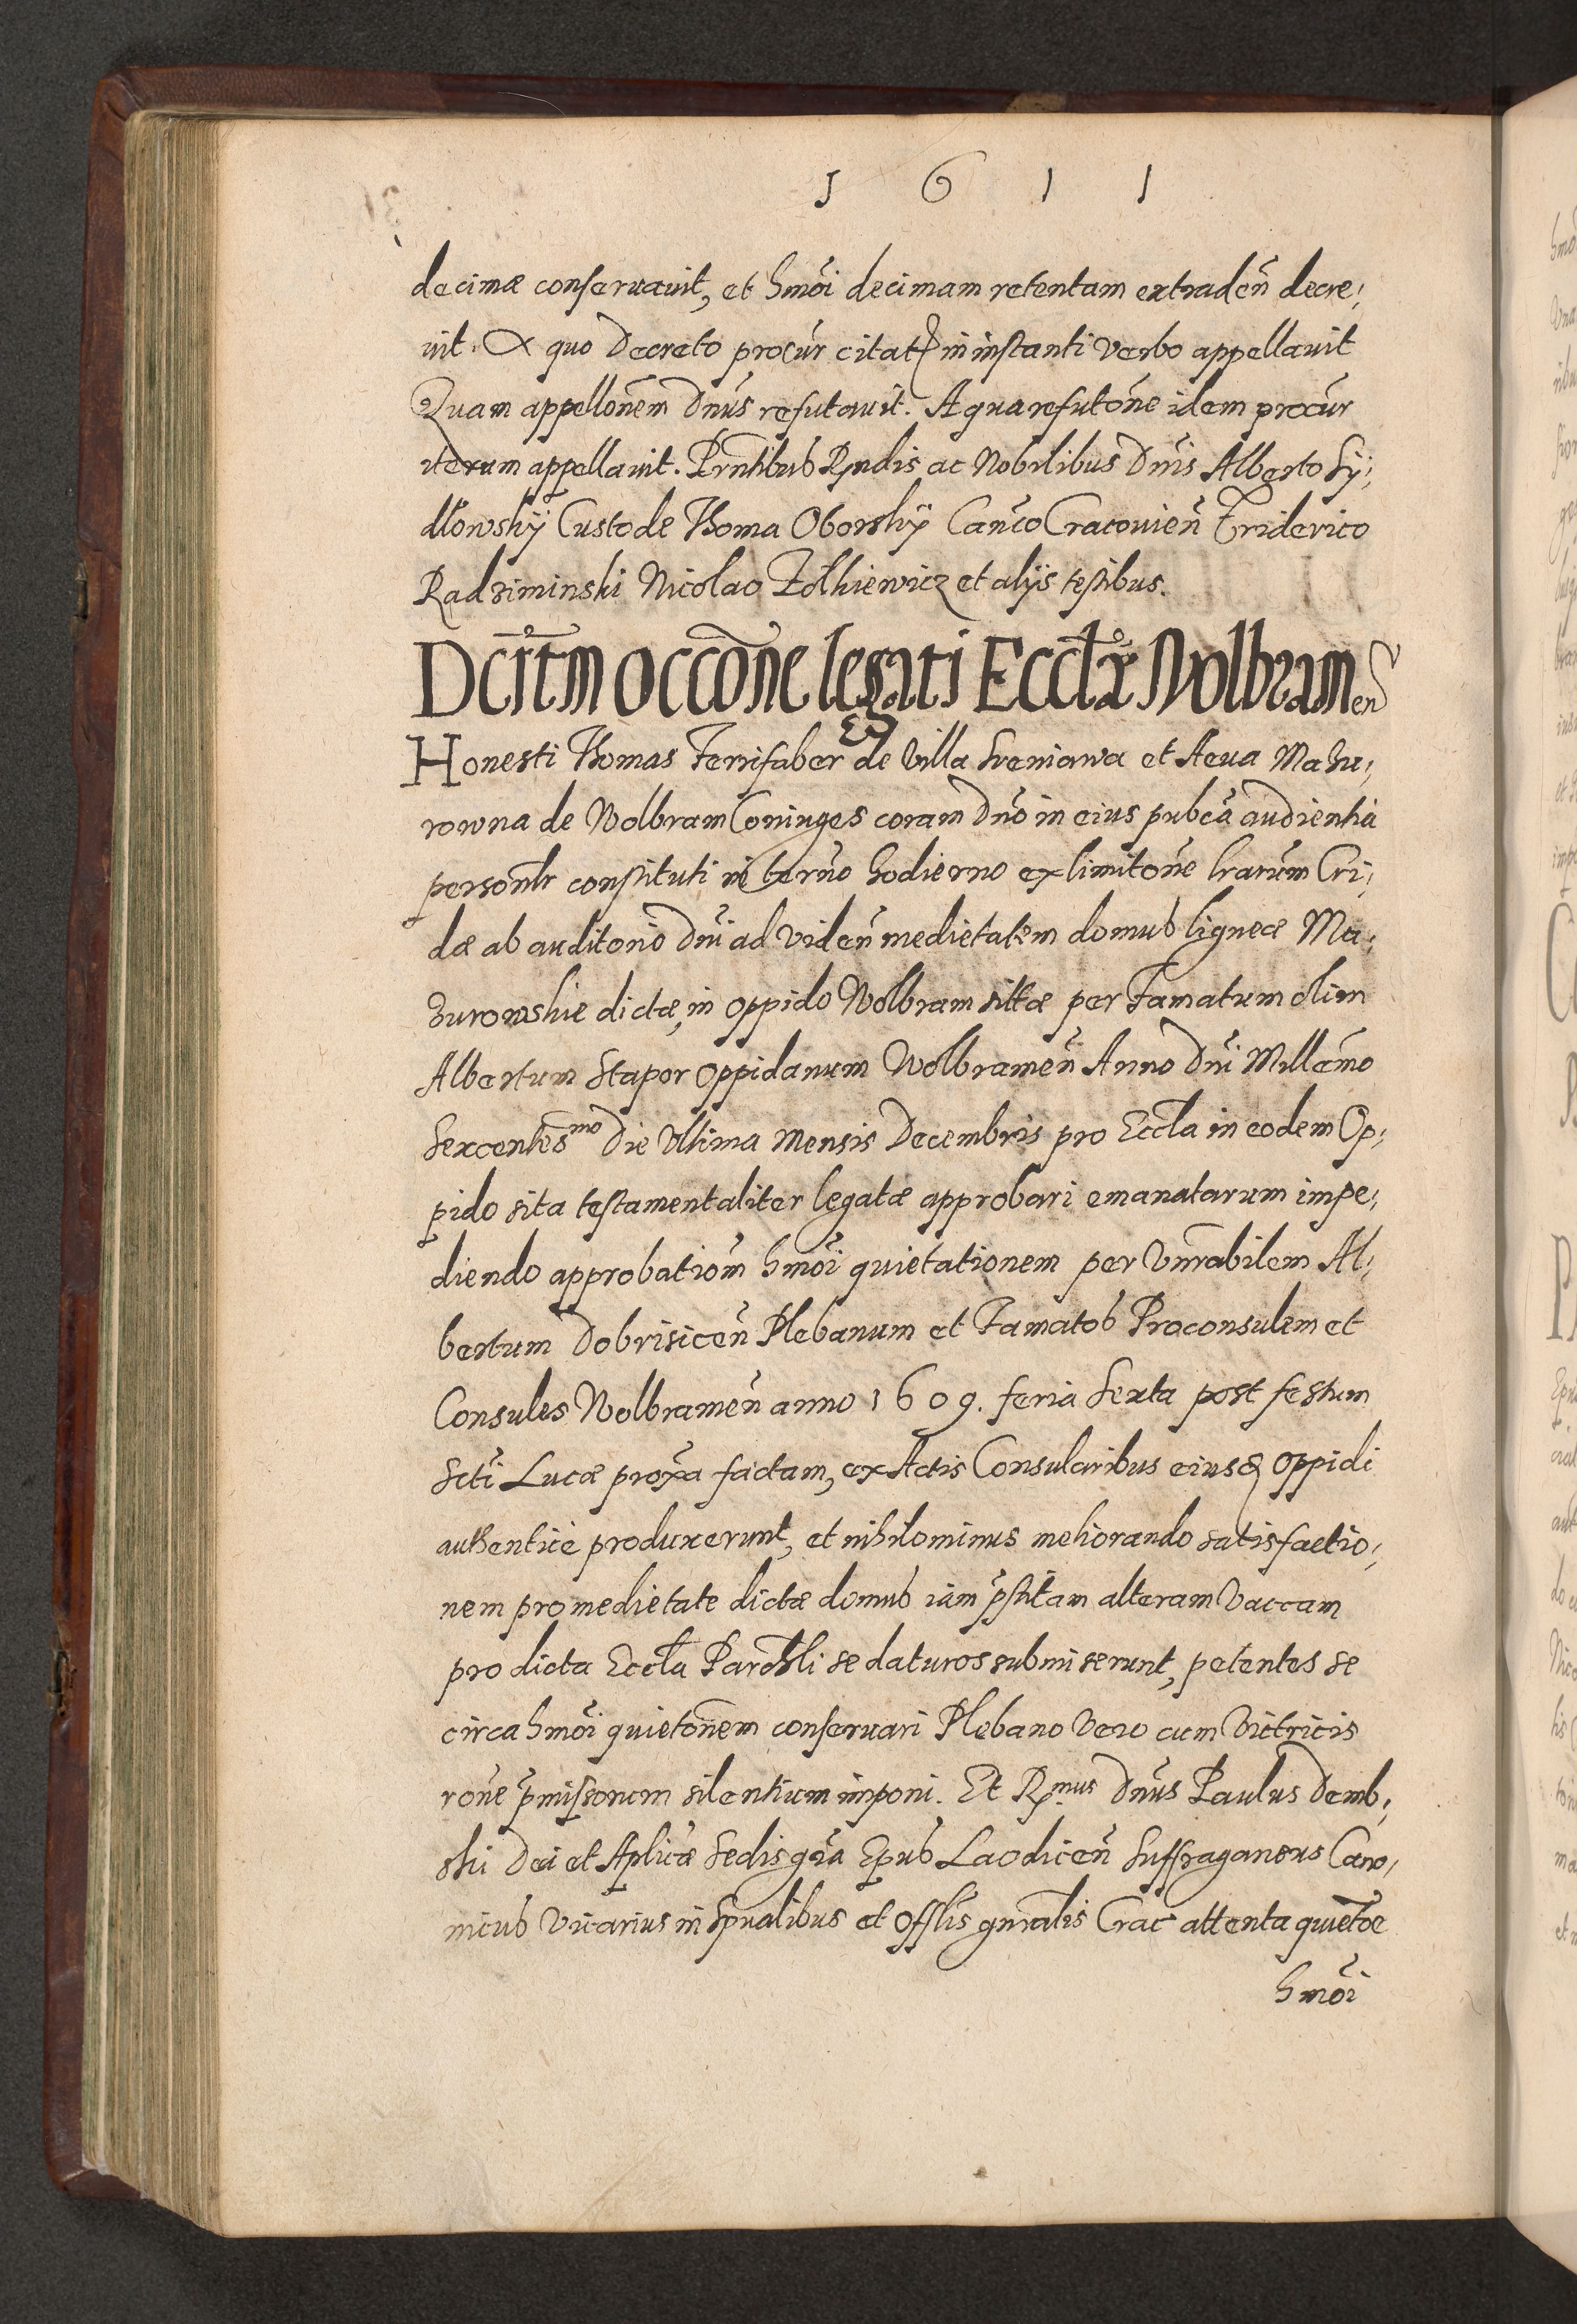 1 6 1 1
decimæ conseruauit, et hmōi decimam retentam extradeñ decre¡
uit. A quo Decreto procūr citat in instanti verbo appellauit
Quam appellōnem Dnūs refutauit. A qua refutōne idem procūr
iterum appellauit. Prntibus Rndis ac Nobilibus Dnīs Alberto Sÿ¡
dłowskÿ Custode Thoma Oborskÿ Canco Cracovieñ Friderico
Radziminski Nicolao Zolkiewicz et alÿs testibus.
Dcrtm occōne legati Eccłæ Wolbramen
Honesti Thomas Ferrifaber de Villa Sreniawa et Aeva Mazu¡
rowna de Wolbram Coniuges coram Dnō in eius pubcā audientia
personłr constituti in terno hodierno ex limitōne lrarum Cri¡
dæ ab auditorio Dnī ad videñ medietatem domus ligneæ Ma¡
zurowskie dictæ, in oppido Wolbram sittæ per Famatum olim
Albertum Stapor oppidanum Wolbrameñ Anno Dnī Millemo
Sexcentesmo die Vltima Mensis Decembris pro Eccła in eodem Op¡
pido sita testamentaliter legatæ approbari emanatarum impe¡
diendo approbatiom hmōi quietationem per Vnrabilem Al¡
bertum Dobrisiceñ Plebanum et Famatos Proconsulem et
Consules Wolbrameñ anno 1609. feria Sexta post festum
Scti Lucæ proxa factam, ex Actis Consularibus eiusd oppidi
authentice produxerunt, et nihilominus meliorando satisfactio¡
nem pro medietate dictæ domus iam pstitam alteram Vaccam
pro dicta Eccła Parochli se daturos submiserunt, petentes se
circa hmōi quietōnem conseruari Plebano Vero cum Victricis
rōne pmissorum silentium imponi. Et Rmus Dnūs Paulus Demb¡
ski Dei et Aplicæ Sedis gra Epus Laodiceñ Suffraganeus Cano¡
nicus Vicarius in Spualibus et Offlis gnralis Crac attenta quietōe
hmōi